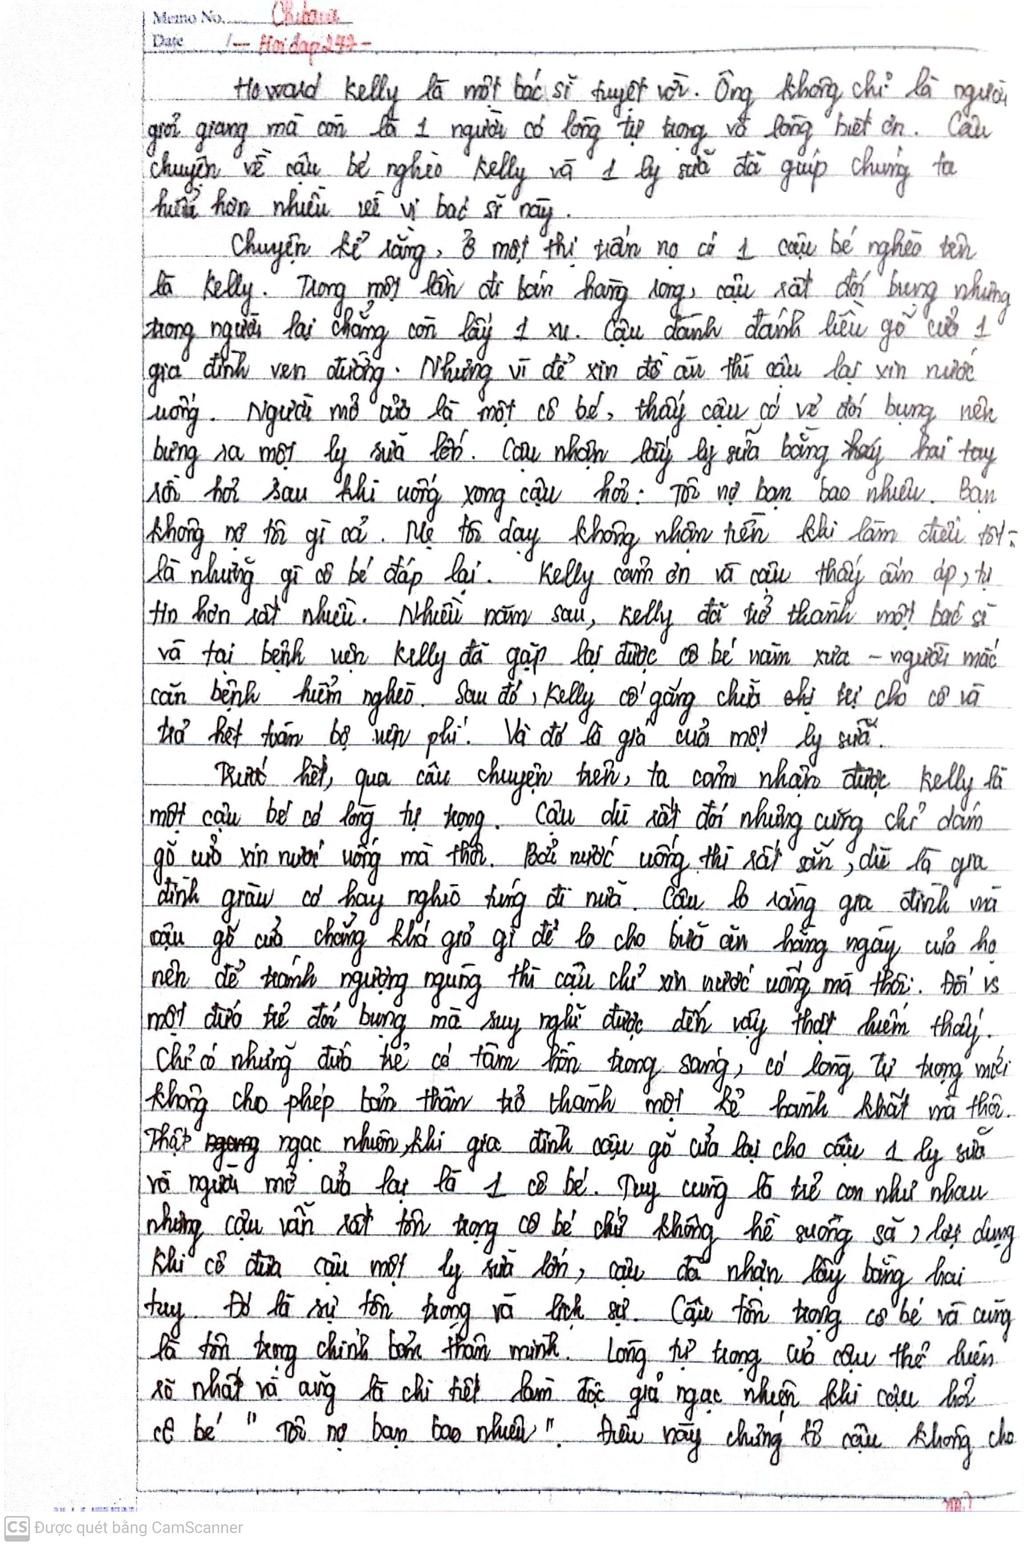 Memo No. Chibana
Date /— Hoidap247 —
Howard Kelly là một bác sĩ tuyệt vời. Ông không chỉ là người
giỏi giang mà còn là 1 người có lòng tự trọng và lòng biết ơn. Câu
chuyện về cậu bé nghèo Kelly và 1 ly sữa đã giúp chúng ta
hiểu hơn nhiều về vị bác sĩ này.
Chuyện kể rằng, ở một thị trấn nọ có 1 cậu bé nghèo tên
là Kelly. Trong một lần đi bán hàng rong, cậu rất đói bụng nhưng
trong người lại chẳng còn lấy 1 xu. Cậu đành đánh liều gõ cửa 1
gia đình ven đường. Nhưng vì để xin đồ ăn thì cậu lại xin nước
uống. Người mở cửa là một cô bé, thấy cậu có vẻ đói bụng nên
bưng ra một ly sữa lớn. Cậu nhận lấy ly sữa bằng hay hai tay
rồi hỏi sau khi uống xong cậu hỏi: Tôi nợ bạn bao nhiêu. Bạn
không nợ tôi gì cả. Mẹ tôi dạy không nhận tiền khi làm điều tốt-
là những gì cô bé đáp lại. Kelly cảm ơn và cậu thấy ấm áp, tự
tin hơn rất nhiều. Nhiều năm sau, Kelly đã trở thành một bác sĩ
và tại bệnh viện Kelly đã gặp lại được cô bé năm xưa - người mắc
căn bệnh hiểm nghèo. Sau đó, Kelly cố gắng chữa trị cho cô và
trả hết toàn bộ viện phí. Và đó là giá của một ly sữa.
Trước hết, qua câu chuyện trên, ta cảm nhận được Kelly là
một cậu bé có lòng tự trọng. Cậu dù rất đói nhưng cũng chỉ dám
gõ cửa xin nước uống mà thôi. Bởi nước uống thì rất sẵn, dù là gia
đình giàu có hay nghèo túng đi nữa. Cậu lo rằng gia đình mà
cậu gõ cửa chẳng khá giả gì để lo cho bữa ăn hằng ngày của họ
nên để tránh ngượng ngùng thì cậu chỉ xin nước uống mà thôi. Đối vs
một đứa trẻ đói bụng mà suy nghĩ được đến vậy thật hiếm thấy.
Chỉ có những đứa trẻ có tâm hồn trong sáng, có lòng tự trọng mới
không cho phép bản thân trở thành một kẻ hành khất mà thôi.
Thật ngạc nhiên, khi gia đình cậu gõ cửa lại cho cậu 1 ly sữa
và người mở cửa lại là 1 cô bé. Tuy cũng là trẻ con như nhau
nhưng cậu vẫn rất tôn trọng cô bé chứ không hề suồng sã, lợi dụng
Khi cô đưa cậu một ly sữa lớn, cậu đã nhận lấy bằng hai
tay. Đó là sự tôn trọng và lịch sự. Cậu tôn trọng cô bé và cũng
là tôn trọng chính bản thân mình. Lòng tự trọng của cậu thể hiện
rõ nhất và cũng là chi tiết làm độc giả ngạc nhiên khi cậu hỏi
cô bé "Tôi nợ bạn bao nhiêu". Điều này chứng tỏ cậu không cho
CS Được quét bằng CamScanner